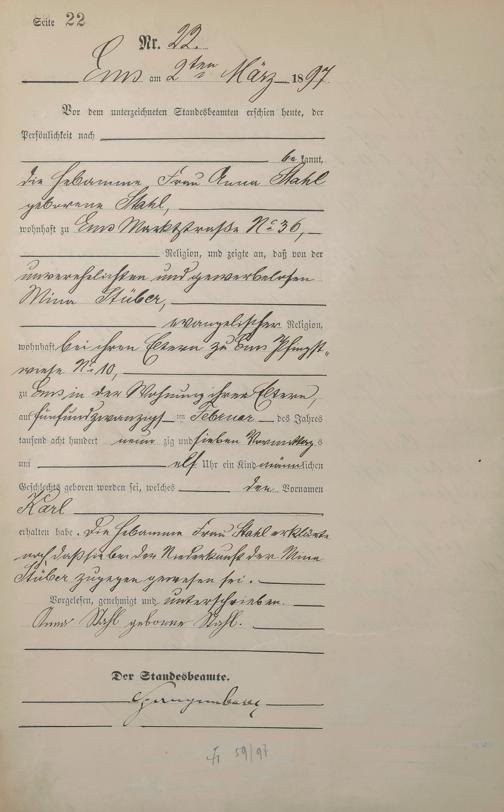 Seite 22
Nr. 22.
Ems am 2ten März 1897
Vor dem unterzeichneten Standesbeamten erschien heute, der
Persönlichkeit nach
be kannt,
die Hebamme Frau Anna Stahl
geborene Stahl,
wohnhaft zu Ems Marktstraße No 36,
Religion, und zeigte an, daß von der
unverehelichten und gewerbelosen
Mina Stüber,
evangelischer Religion,
wohnhaft bei ihren Eltern zu Ems Pfingst-
wiese No 10,
zu Ems in der Wohnung ihrer Eltern,
am fünfundzwanzigsten Februar des Jahres
tausend acht hundert neun zig und sieben Vormittags
um elf Uhr ein Kind männlichen
Geschlechts geboren worden sei, welches den Vornamen
Karl
erhalten habe. Die Hebamme Frau Stahl erklärte
noch daß sie bei der Niederkunft der Mina
Stüber zugegen gewesen sei.
Vorgelesen, genehmigt und unterschrieben.
Anna Stahl geborne Stahl.
Der Standesbeamte.
59/97